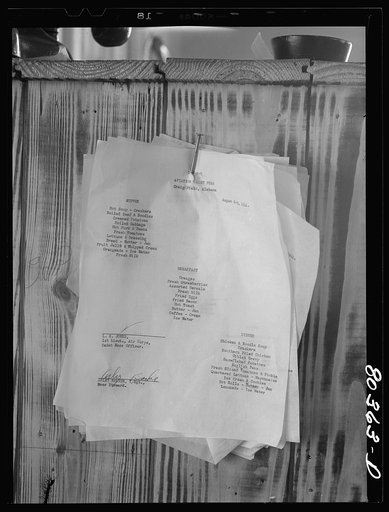 AVIATION CADET MESS
Craig Field, Alabama
SUPPER
Hot Soup - Crackers
Boiled Beef & Noodles
Creamed Potatoes
Boiled Cabbage
Hot Pork & Beans
Fresh Tomatoes
Lettuce & Dressing
Bread - Butter - Jam
Fruit Jello & Whipped Cream
Orangeade - Ice Water
Fresh Milk
BREAKFAST
Oranges
Fresh Strawberries
Assorted Cereals
Fresh Milk
Fried Eggs
Fried Bacon
Hot Toast
Butter - Jam
Coffee - Cream
Ice Water
DINNER
Chicken & Noodle Soup
Crackers
Southern Fried Chicken
Giblet Gravy
Snowflaked Potatoes
English Peas
Fresh Sliced Tomatoes & Pickle
Quartered Lettuce - Mayonnaise
Ice Cream & Cookies
Hot Rolls - Butter - Jam
Lemonade - Ice Water
1st Lieut., Air Corps,
Cadet Mess Officer.
Mess Steward.
80363-D
18